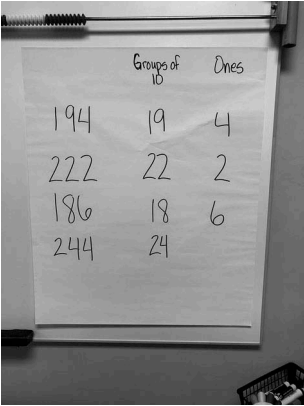 Groups of Ones
10
194 19 4
222 22 2
186 18 6
244 24